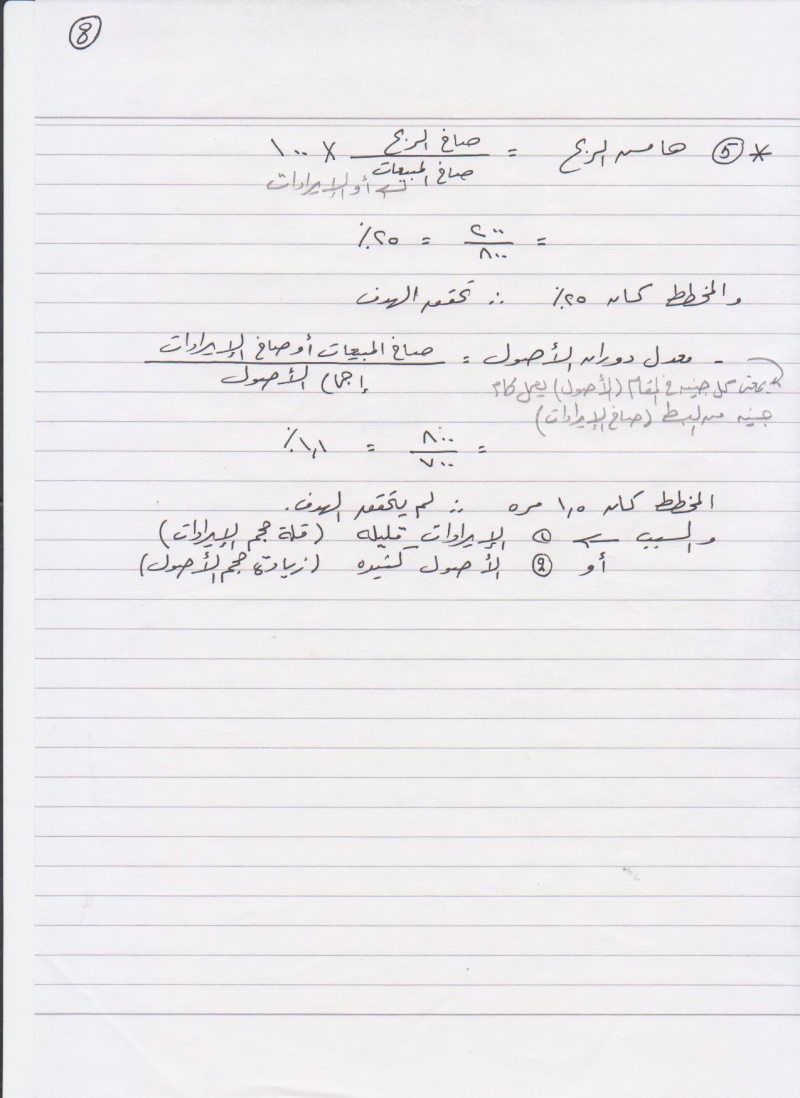 8
* ⑤ هامش الربح = صافي الربح / صافي المبيعات × ١٠٠
أو الإيرادات
= ٢٠٠ / ٨٠٠ = ٢٥٪
والمخطط كان ٢٥٪ ∴ تحقق الهدف
- معدل دوران الأصول = صافي المبيعات أو صافي الإيرادات / إجمالي الأصول
بمعنى كل جنيه في المقام (الأصول) يعمل كام
جنيه من البسط (صافي الإيرادات)
= ٨٠٠ / ٧٠٠ = ١,١٪
المخطط كان ١,٥ مره ∴ لم يتحقق الهدف.
والسبب ← ① الإيرادات قليله (قلة حجم الإيرادات)
أو ② الأصول كثيره (زيادة حجم الأصول)